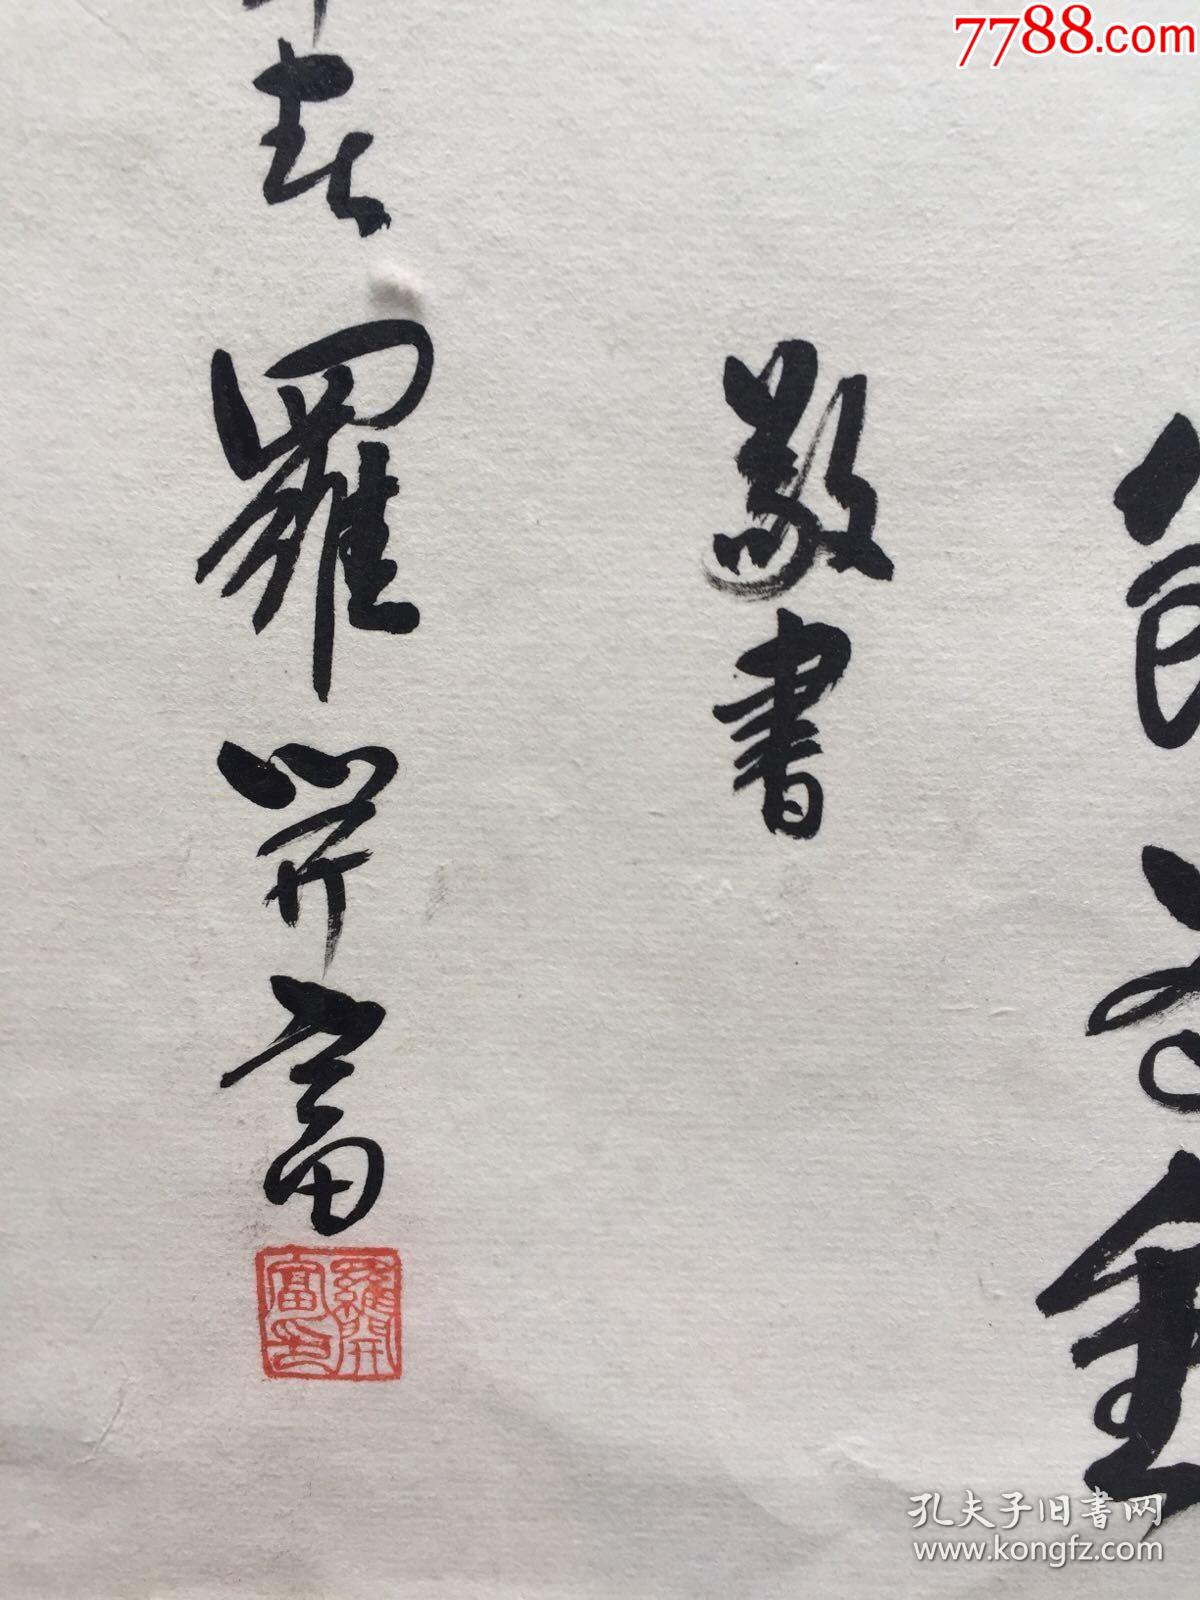 7788.com
敬書
春
羅開富
羅開富印
孔夫子旧书网
www.kongfz.com